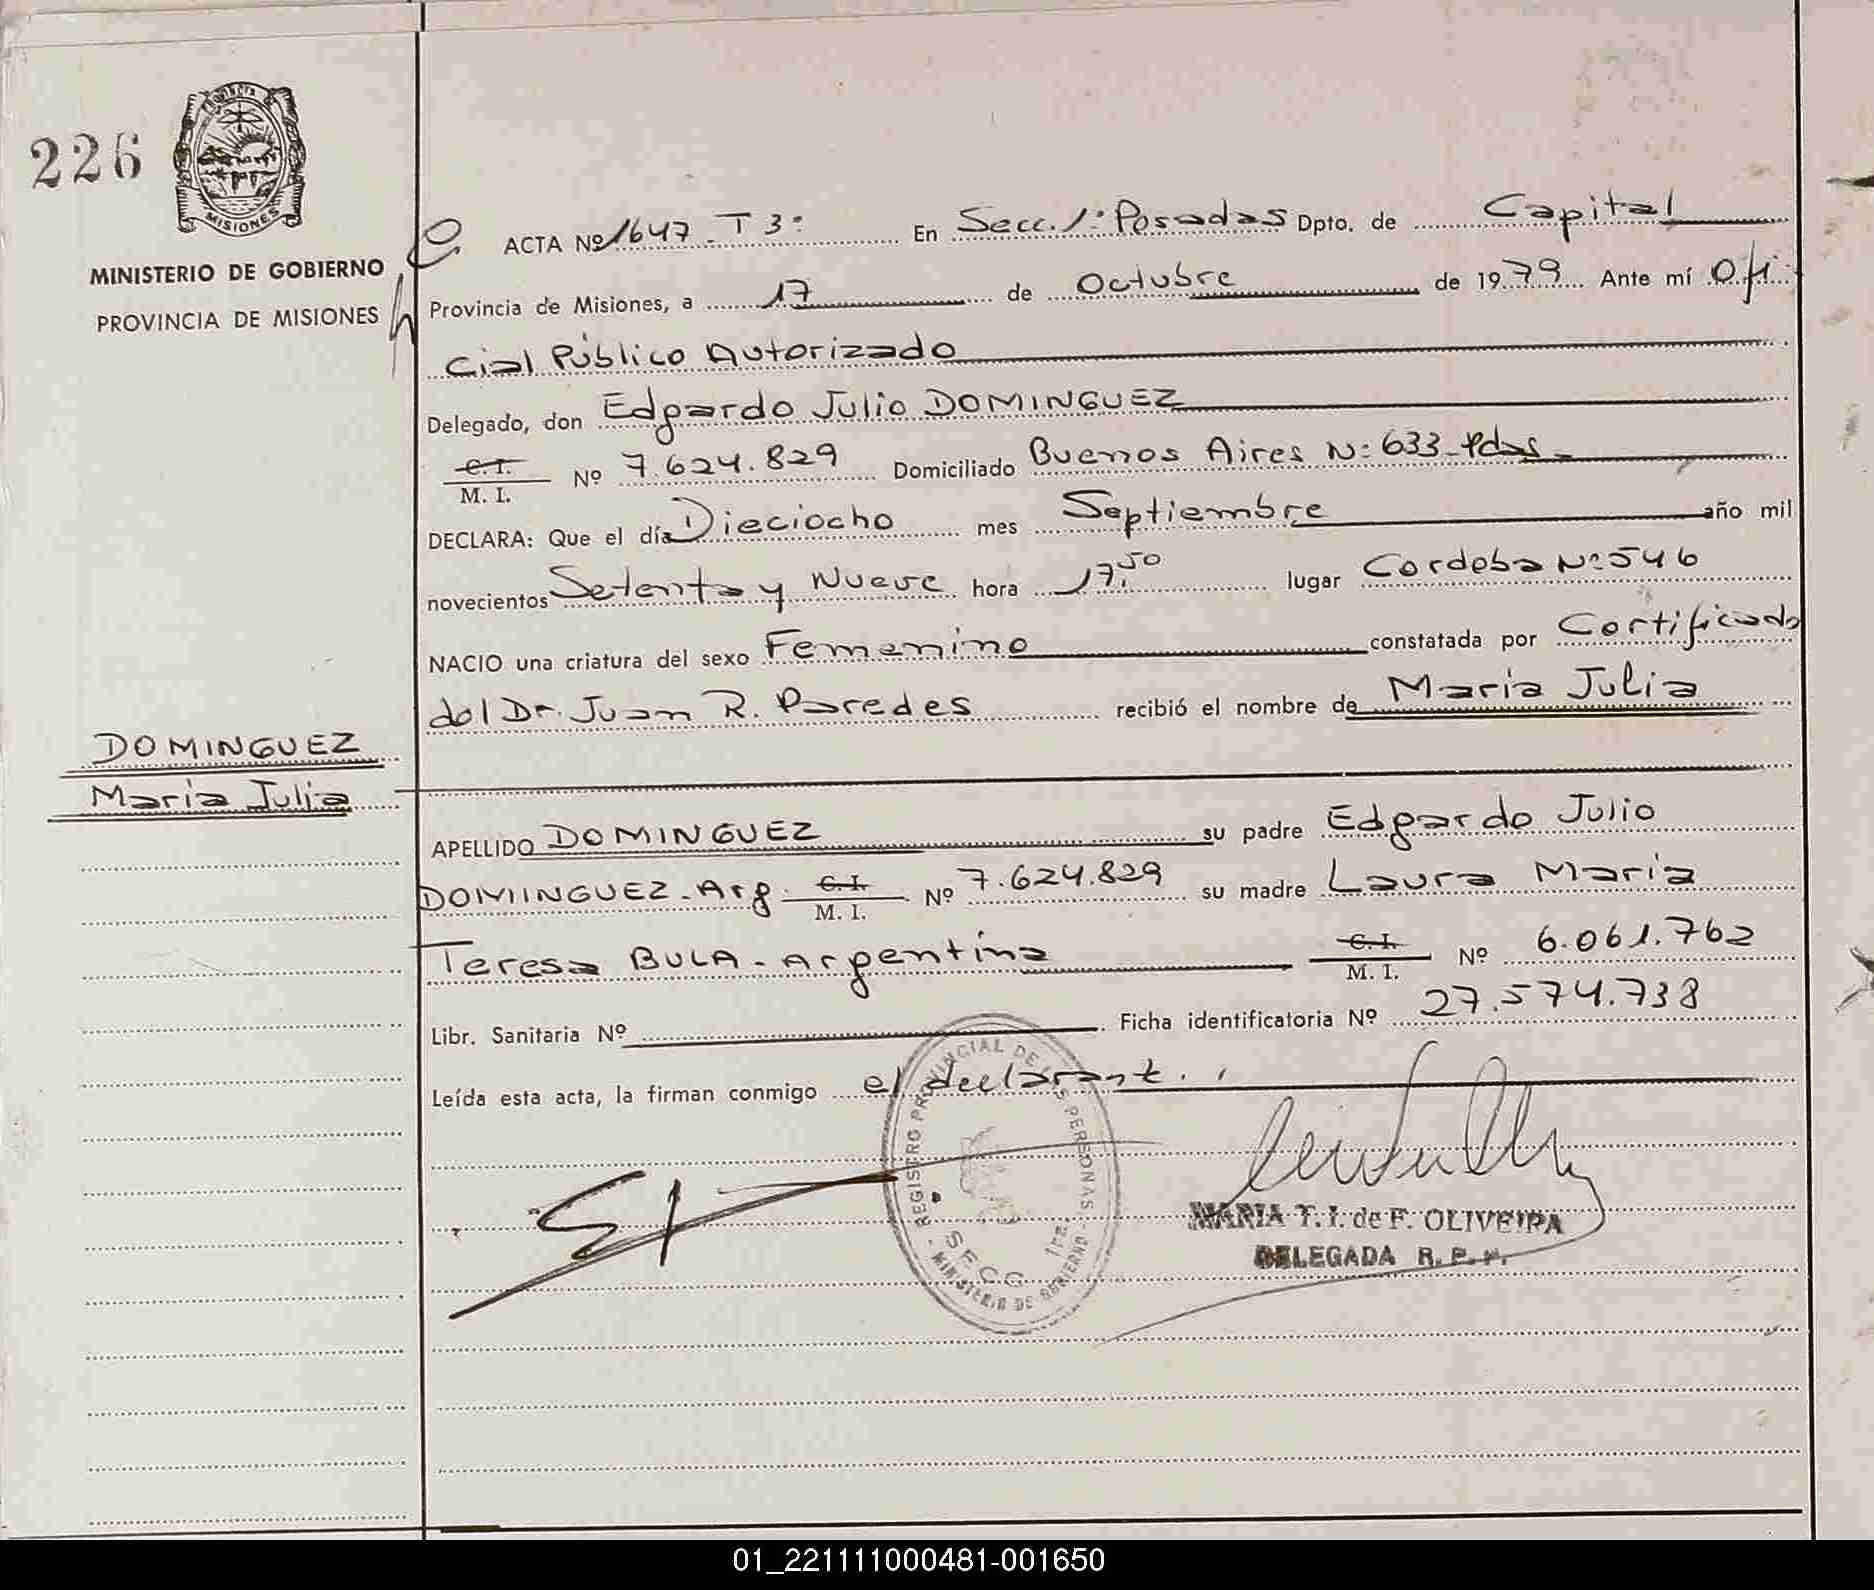 226
PROVINCIA
MISIONES
MINISTERIO DE GOBIERNO
PROVINCIA DE MISIONES
ACTA Nº 1647 - T 3º En Secc. 1º Posadas Dpto. de Capital
Provincia de Misiones, a 17 de Octubre de 1979 Ante mí Ofi
cial Público Autorizado
Delegado, don Edgardo Julio DOMINGUEZ
C.I.
M. I. Nº 7.624.829 Domiciliado Buenos Aires Nº 633 - Pdas -
DECLARA: Que el día Dieciocho mes Septiembre año mil
novecientos Setenta y Nueve hora 17.50 lugar Cordoba Nº 546
NACIO una criatura del sexo Femenino constatada por Certificado
del Dr. Juan R. Paredes recibió el nombre de Maria Julia
DOMINGUEZ
Maria Julia
APELLIDO DOMINGUEZ su padre Edgardo Julio
DOMINGUEZ - Arg. C.I. M. I. Nº 7.624.829 su madre Laura Maria
Teresa BULA - Argentina C.I. M. I. Nº 6.061.762
Libr. Sanitaria Nº Ficha identificatoria Nº 27.574.738
Leída esta acta, la firman conmigo el declarant.
REGISTRO PROVINCIAL DE LAS PERSONAS
SECC 1ra.
MINISTERIO DE GOBIERNO
MARIA T. I. de F. OLIVEIRA
DELEGADA R. P. P.
01_221111000481-001650